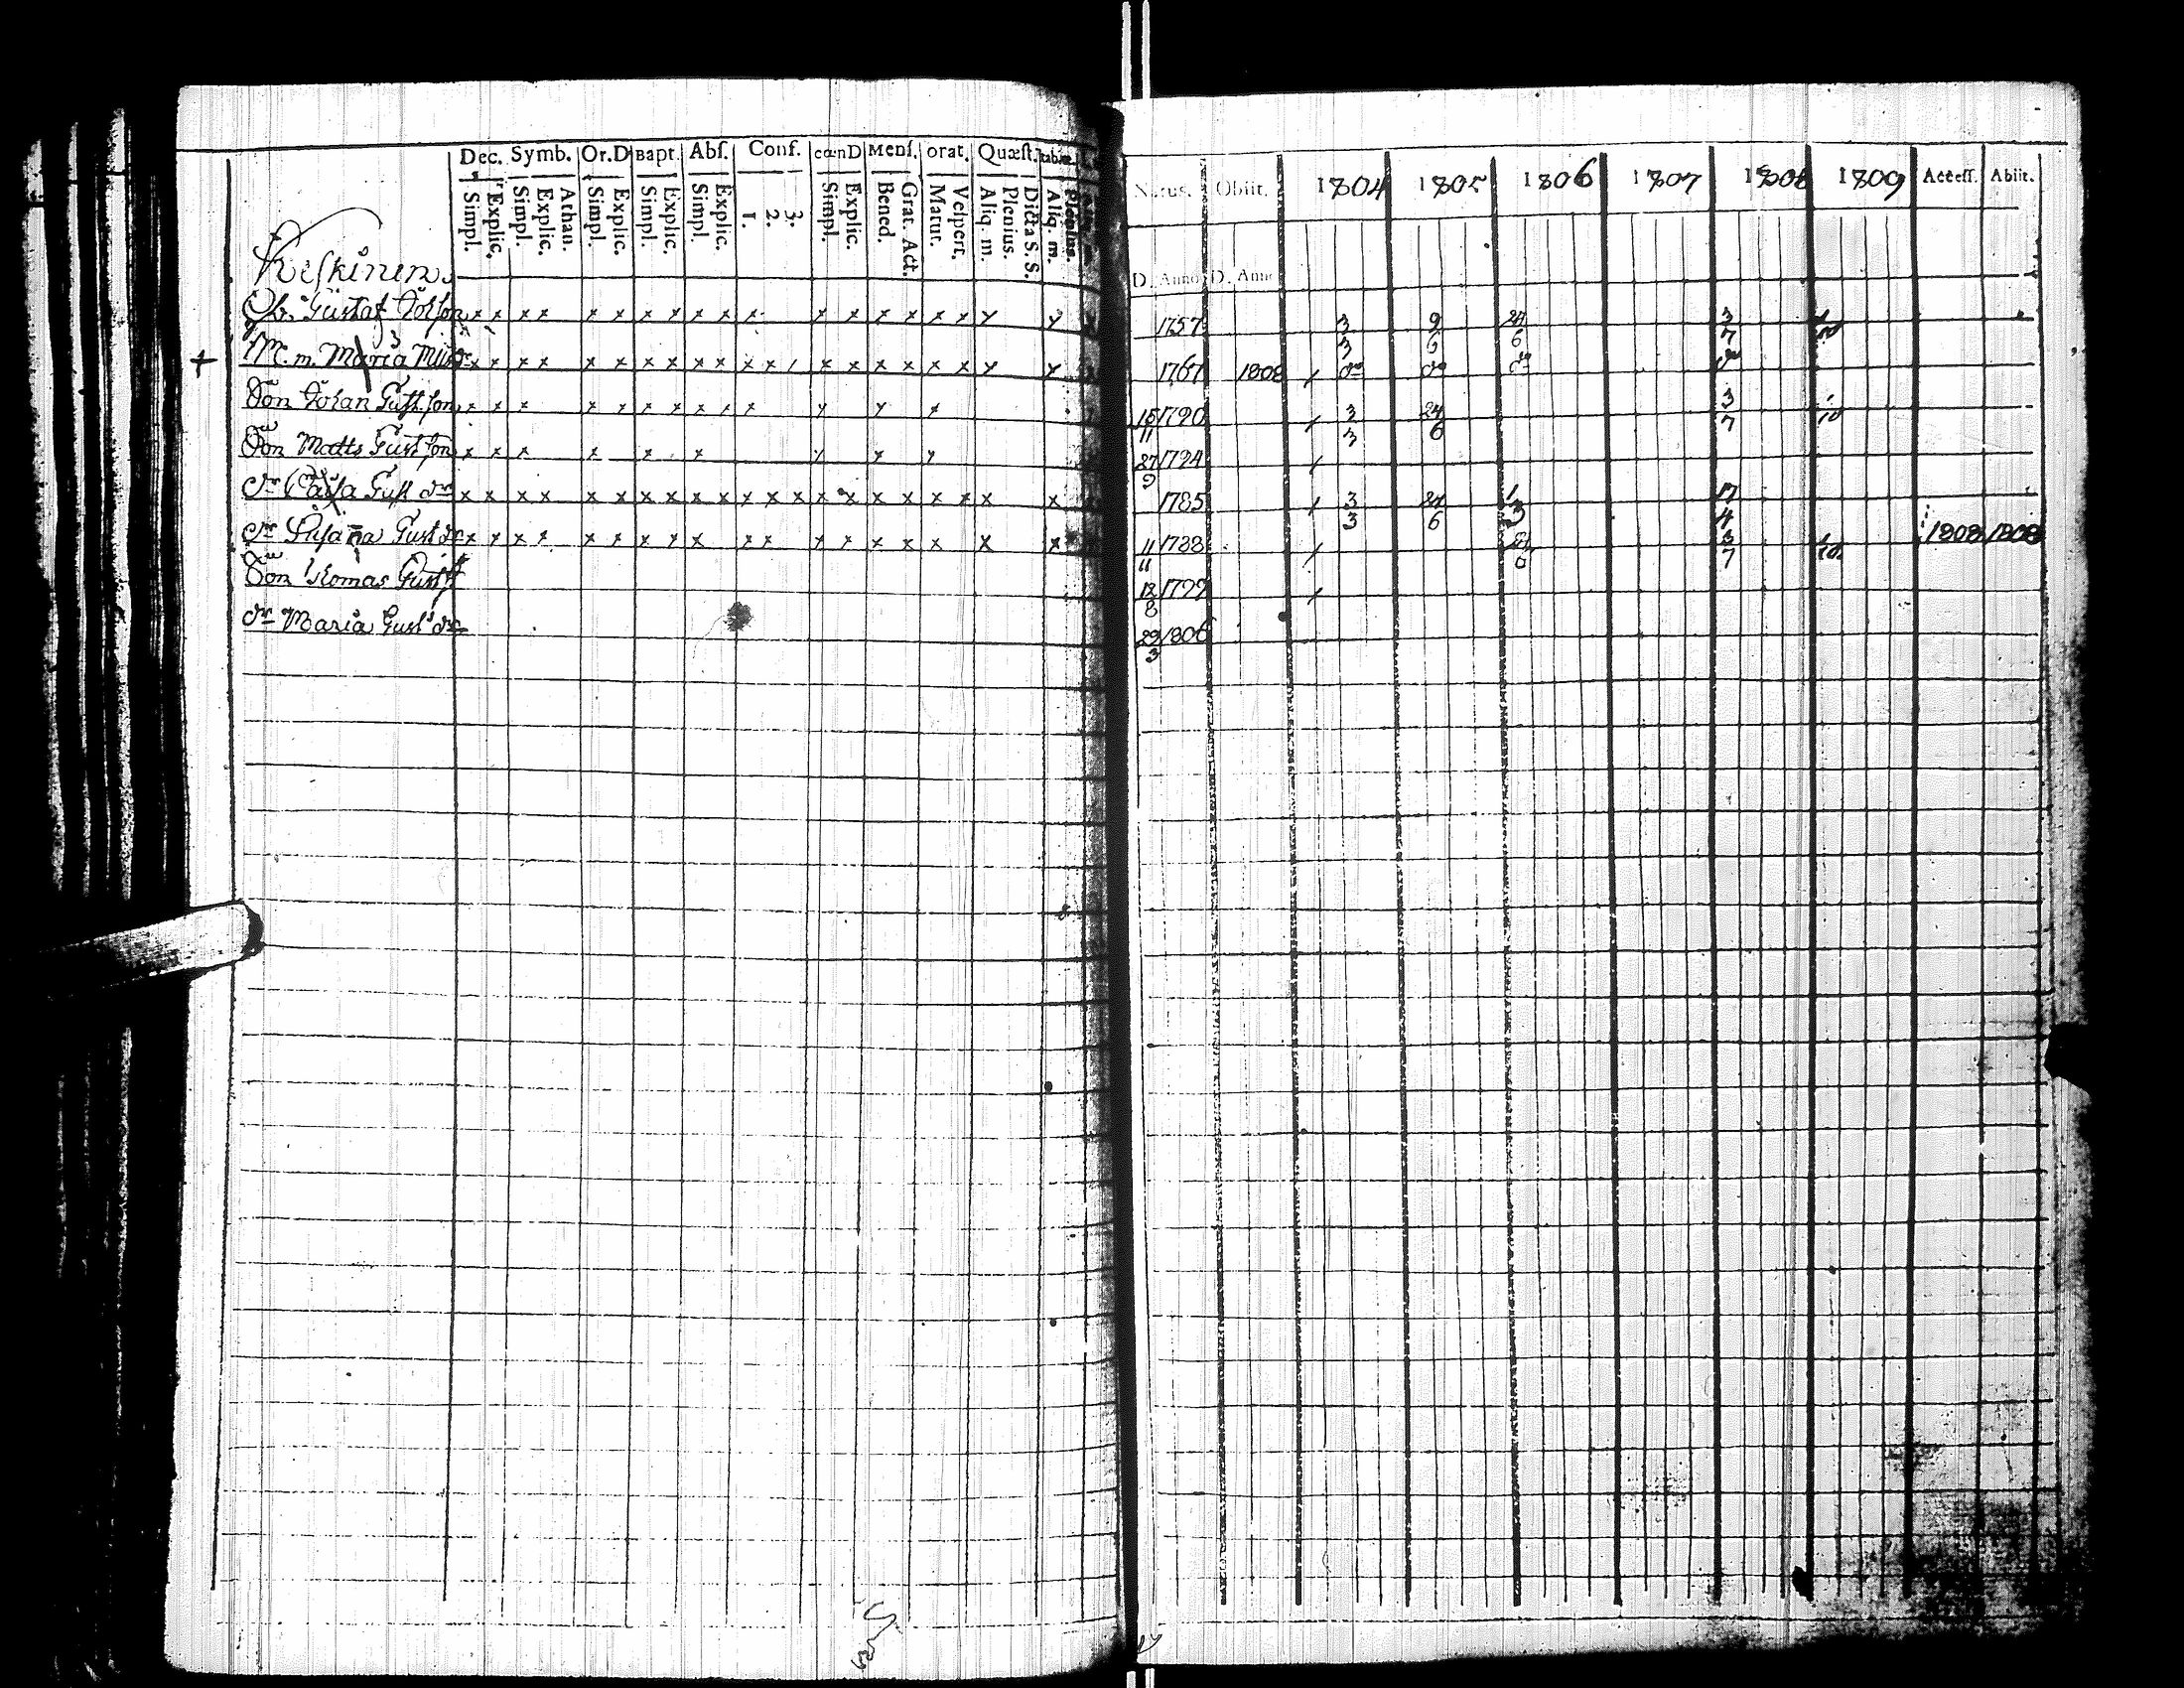 Dec. Symb. Or.D Bapt. Abſ. Conf. cœnD Menſ. orat. Quæſt. tabæ.
Simpl. Explic. Simpl. Explic. Athan. Simpl. Explic. Simpl. Explic. Simpl. Explic. 1. 2. 3. Simpl. Explic. Bened. Grat. Act. Matut. Veſpert. Aliq. m. Plenius. Dicta S. S. Aliq. m. Plenius.
Natus. Obiit. 1804 1805 1806 1807 1808 1809 Acceſſ. Abiit.
D. Anno D. Anno
Keskinen
Gustaf x x x x x x x x x x x x x x x x x y y 1757 3/3 9/6 24/6 3/7
M. m. Maria x x x x x x x x x x x x / x x x x x x y y 1767 1808 / do do do do
Son Johan Gust. son x x x x x x x x x x y y x 15/11 1790 / 3/3 24/6 3/7
Son Matts Gust son x x x x x x y x y 27/9 1794 /
dr Caisa Gust dr x x x x x x x x x x x x x x x x x x x x x 1785 / 3/3 24/6 1/3 17/4
dr Susana Gust dr x x x x x x x x x x x x x x x x x x 11/11 1788 / 3/7 1808 1808
Son Thomas Gust 12/8 1799 /
dr Maria Gust dr 29/3 1806